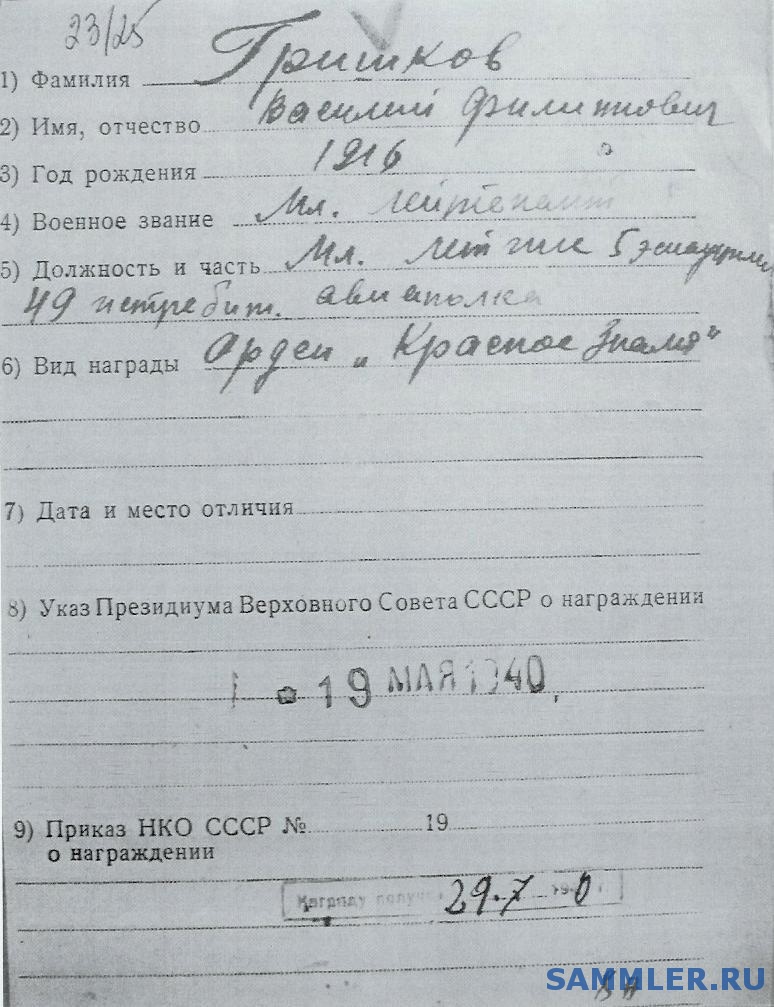 23/25
1) Фамилия Гришков
2) Имя, отчество Василий Филиппович
3) Год рождения 1916
4) Военное звание Мл. лейтенант
5) Должность и часть Мл. летчик 5 эскадрильи
49 истребит. авиаполка
6) Вид награды Орден „Красное Знамя"
7) Дата и место отличия
8) Указ Президиума Верховного Совета СССР о награждении
19 МАЯ 1940
9) Приказ НКО СССР № 19
о награждении
Награду получ 29.7 0
SAMMLER.RU